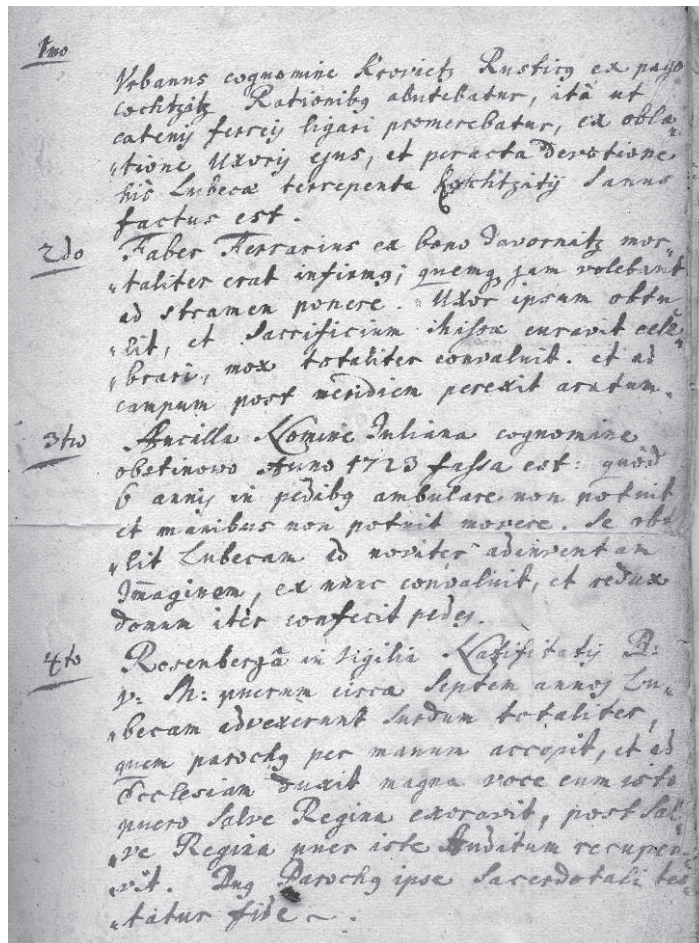 1mo
Urbanus cognomine Krovietz Rusticus ex pago
cochtzitz Rationibus abutebatur, ità ut
catenis ferreis ligari promerebatur, ex obla„
„tione Uxoris ejus, et peracta devotione
hic Lubecæ terrepente Kochtzitys Sanus
factus est.
2do Faber Ferrarius ex bono davornitz mor„
„taliter erat infirmus; quemq jam volebant
ad stramen ponere. Uxor ipsum obtu„
„lit, et Sacrificium missæ curavit cele„
„brari, mox totaliter convaluit. et ad
campum post meridiem perexit aratum.
3tio Ancilla Nomine Juliana cognomine
obstinowo Anno 1723 fassa est: quòd
6 annis in pedibus ambulare non potuit
et manibus non potuit movere. Se obtu
„lit Lubecam ad noviter adinventam
Imaginem, ex nunc convaluit, et redux
domum iter confecit pedes.
4to Rosenbergâ in vigilia Nativitatis B:
V: M: puerum circa Septem annos Lu„
„becam advexerunt Surdum totaliter,
quem parochus per manum accepit, et ad
Ecclesiam duxit magna voce cum isto
puero Salve Regina exoravit, post Sal„
„ve Regina puer iste Auditum recupera
„vit. Dnus Parochus ipse Sacerdotali tes„
„tatur fide ~.